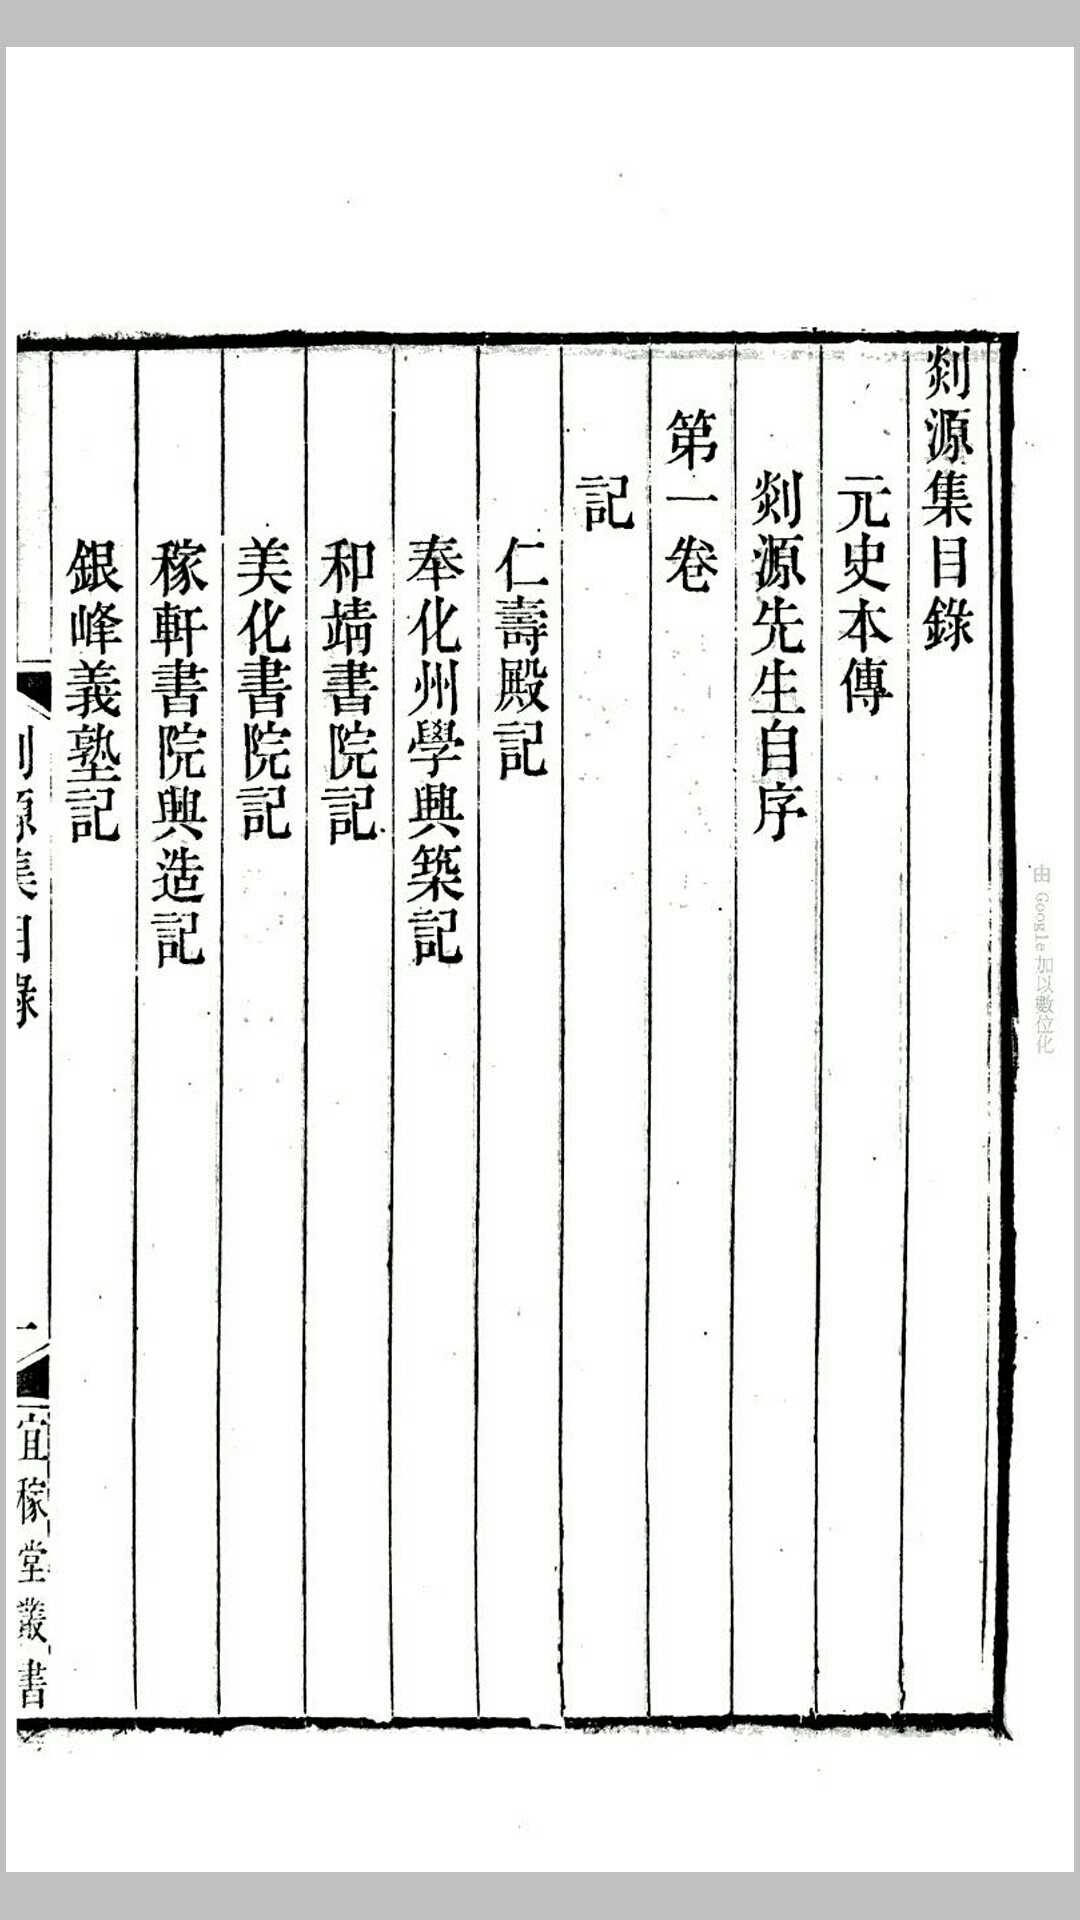 剡源集目錄
元史本傳
剡源先生自序
第一卷
記
仁壽殿記
奉化州學興築記
和靖書院記
美化書院記
稼軒書院興造記
銀峰義塾記
剡源集目錄
一
宜稼堂叢書
由 Google 加以數位化